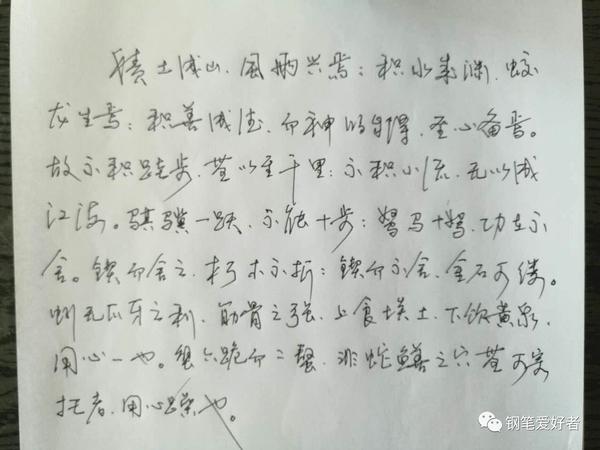 積土成山、風雨兴焉；积水成渊、蛟
龙生焉；积善成德、而神明自得、圣心备焉。
故不积跬步、無以至千里；不积小流、无以成
江海。骐骥一跃、不能十步；驽马十驾、功在不
舍。锲而舍之、朽木不折；锲而不舍、金石可镂。
蚓无爪牙之利、筋骨之强、上食埃土、下饮黄泉、
用心一也。蟹六跪而二螯、非蛇鳝之穴無可寄
托者、用心躁也。
钢笔爱好者